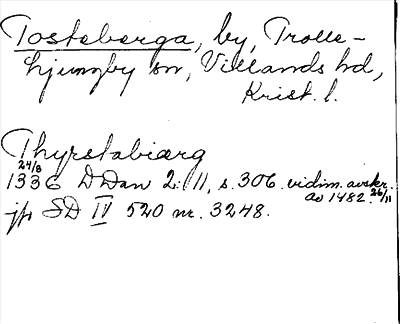 Tosteberga, by, Trolle-
Ljungby sn, Villands hd,
Krist. l.
Thyrstabiærg
24/8
1336 DDan 2:11, s. 306. vidim. avskr.
av 1482 26/11
jfr SD IV 520 nr. 3248.